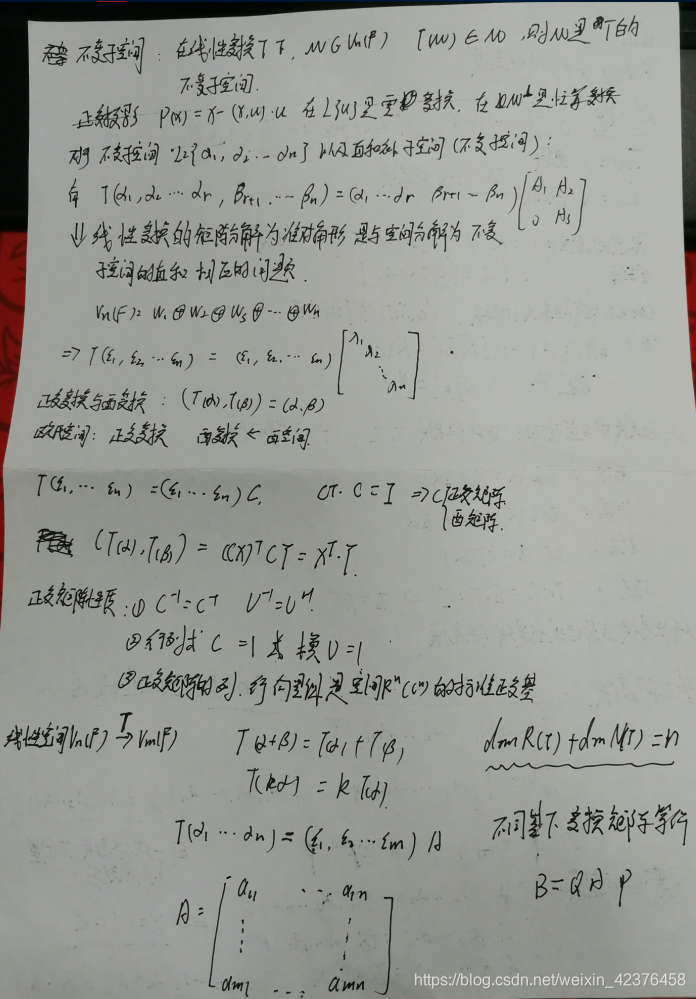 不变子空间：在线性变换T下，W∈Vn(F) T(W)∈W，则W是T的
不变子空间.
正交投影 P(x)=x-(x,u)·u 在L{u}是零变换，在W⊥是恒等变换
对于不变子空间 L{α1,α2…αn} 以及直和补子空间(不变子空间)：
有 T(α1,α2…αr, βr+1…βn)=(α1…αr βr+1…βn)[A1 A2
0 A3]
⇓ 线性变换的矩阵分解为准对角形 是与空间分解为不变
子空间的直和相应的问题.
Vn(F)=W1⊕W2⊕W3⊕…⊕Wn
=> T(ε1,ε2…εn) = (ε1,ε2…εn)[λ1
λ2
⋱
λn]
正交变换与酉变换：(T(α),T(β))=(α,β)
欧氏空间：正交变换 酉变换←酉空间.
T(ε1,…εn)=(ε1…εn)C, CT·C=I =>C{正交矩阵
酉矩阵.
(T(α),T(β)) = (CX)ᵀCY=Xᵀ·Y.
正交矩阵性质：① C⁻¹=Cᵀ U⁻¹=Uᴴ
②行列式C=1 模U=1
③正交矩阵的列、行向量组是空间Rⁿ(Cⁿ)的标准正交基
线性空间Vn(F) T→ Vm(F) T(α+β)=T(α)+T(β) dimR(T)+dimN(T)=n
T(kα) = kT(α)
T(α1…αn)=(ε1,ε2…εm)A 不同基下变换矩阵等价
B=QAP
A=[a11 … a1n
⋮ ⋮
am1 … amn]
https://blog.csdn.net/weixin_42376458